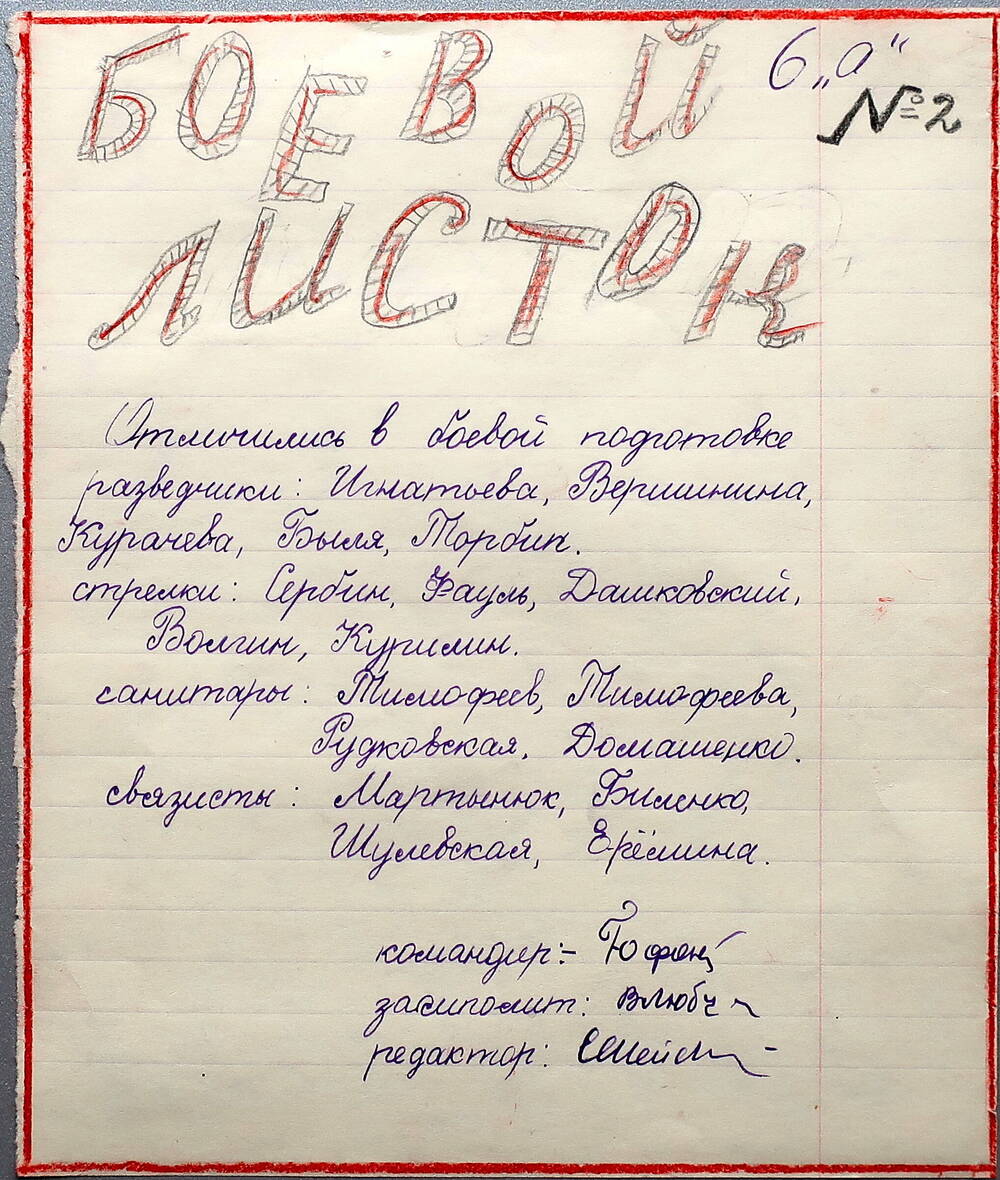 БОЕВОЙ
6 „а“
№2
ЛИСТОК
Отличились в боевой подготовке
разведчики: Игнатьева, Вершинина,
Курачева, Быля, Торбик.
стрелки: Сербин, Фауль, Дашковский,
Волгин, Курилин.
санитары: Тимофеев, Тимофеева,
Рудковская, Домашенко.
связисты: Мартынюк, Биленко,
Шулевская, Ерёмина.
командир:-
замполит:
редактор: